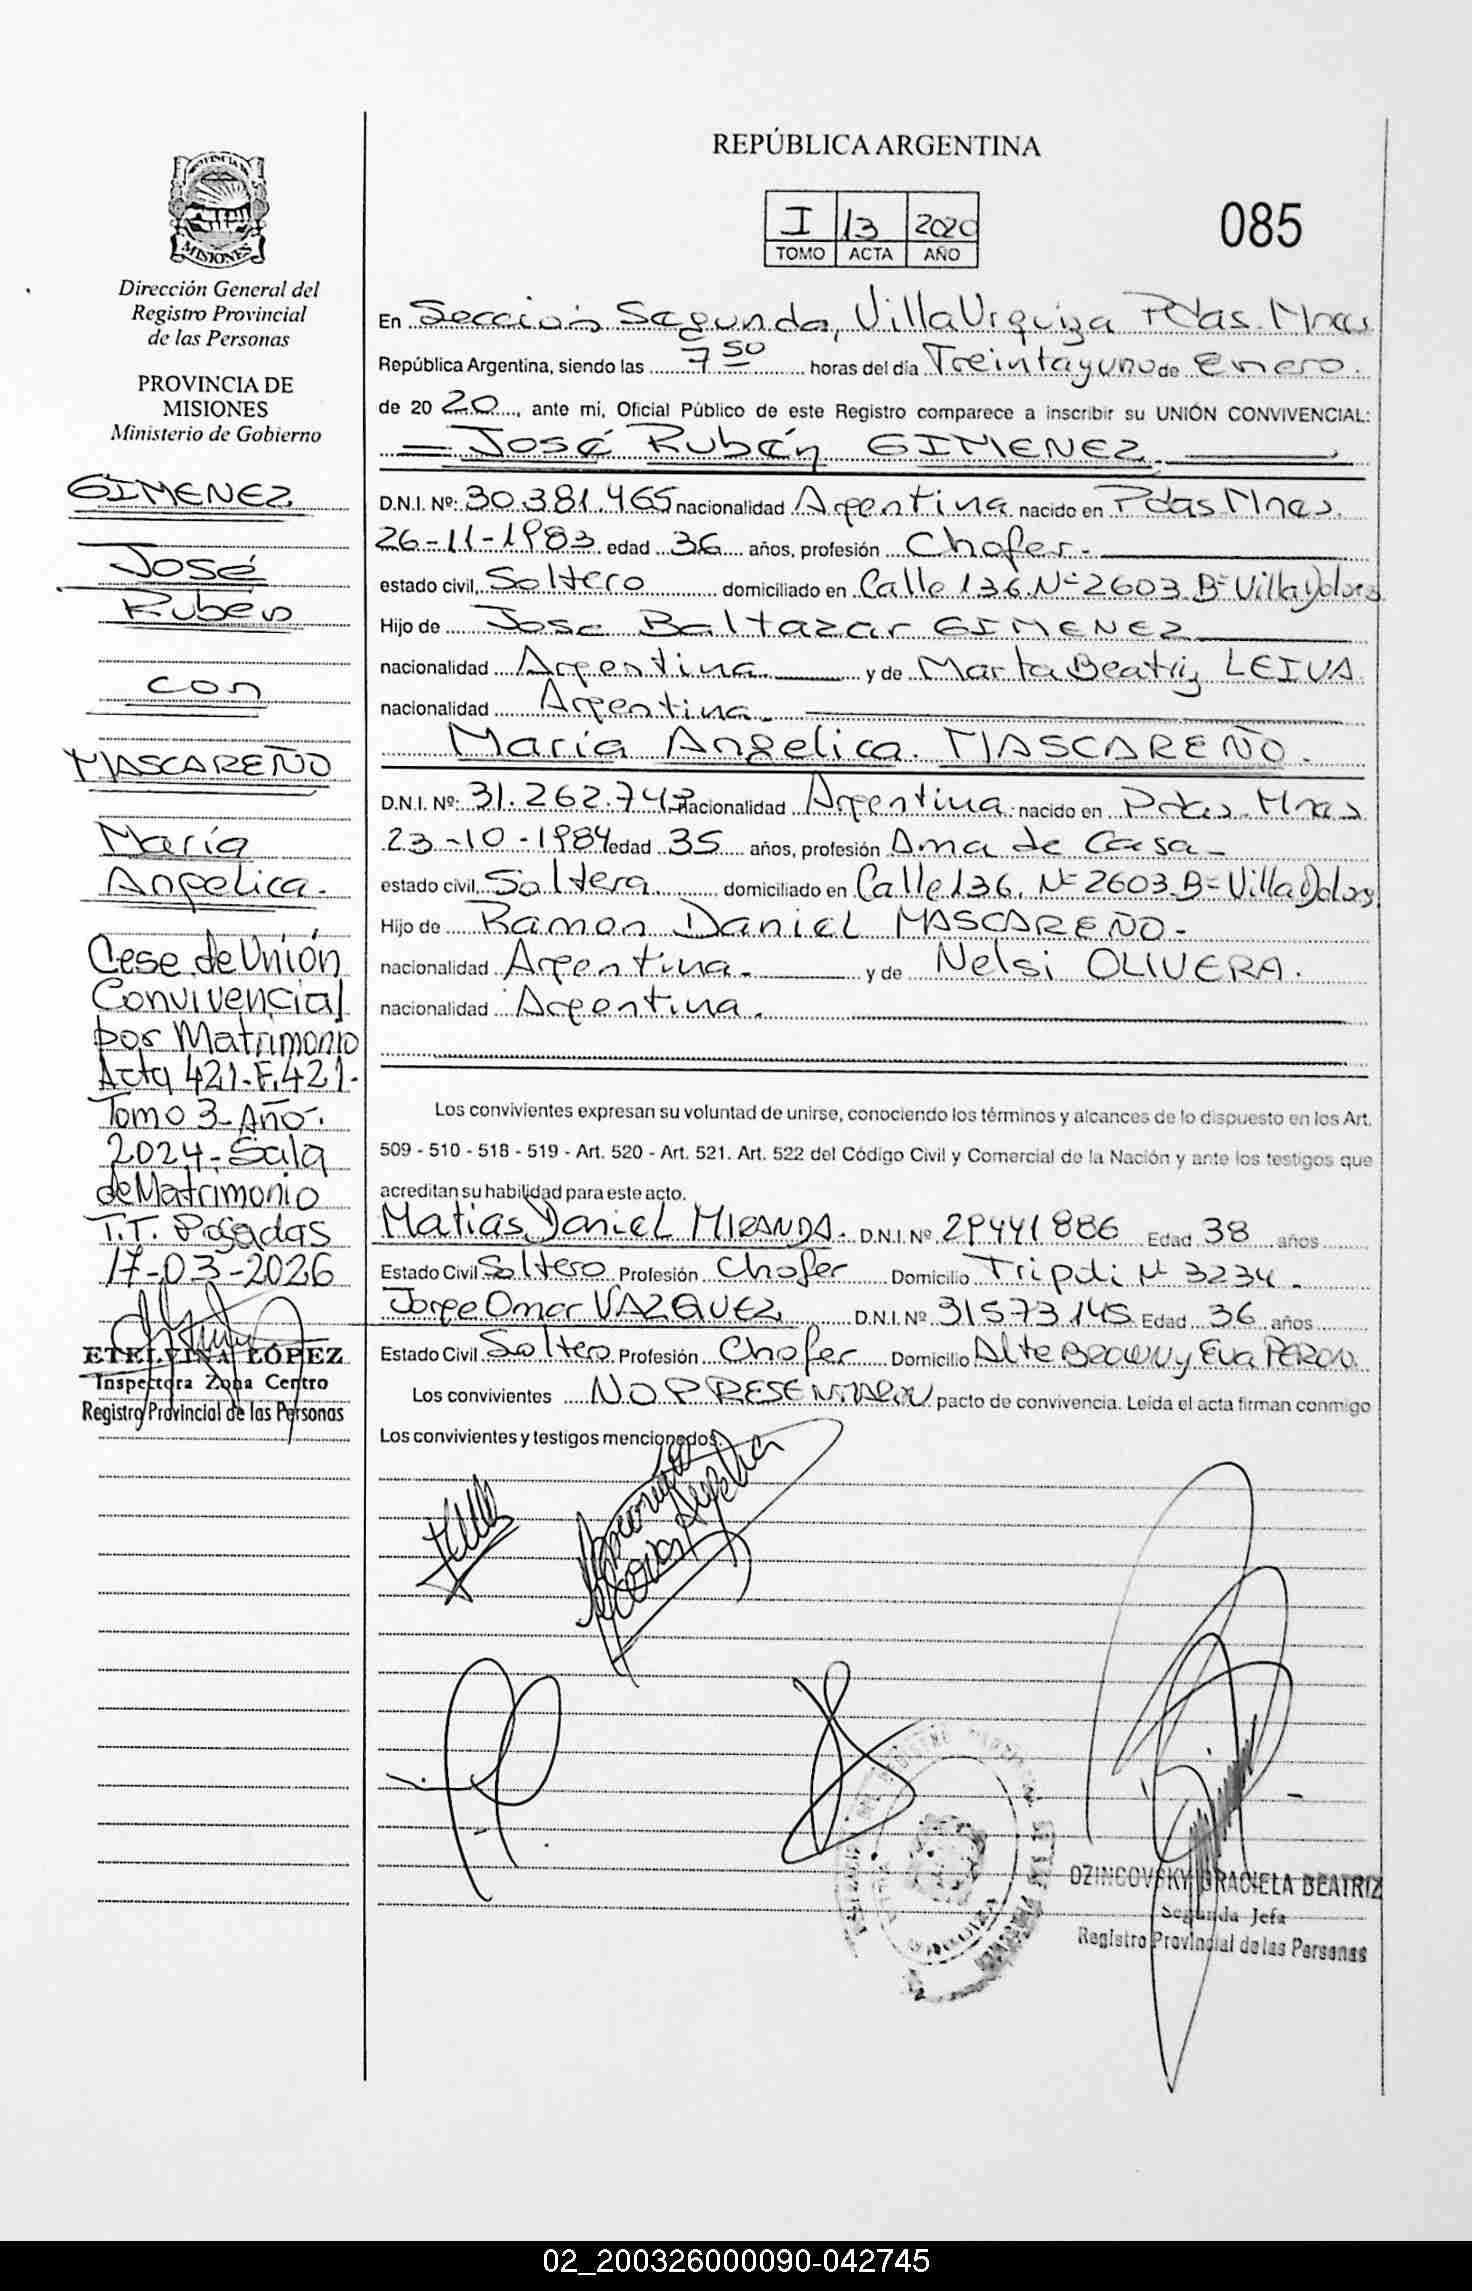 REPÚBLICA ARGENTINA
I 13 2020
TOMO ACTA AÑO
085
PROVINCIA DE MISIONES
Dirección General del
Registro Provincial
de las Personas
PROVINCIA DE
MISIONES
Ministerio de Gobierno
GIMENEZ
José
Ruben
con
MASCAREÑO
María
Angelica.
Cese de Unión
Convivencial
por Matrimonio
Acta 421-F.421-
Tomo 3-Año-
2024-Sala
de Matrimonio
T.T. Posadas
17-03-2026
ETELVINA LÓPEZ
Inspectora Zona Centro
Registro Provincial de las Personas
En Sección Segunda, Villa Urquiza Pdas. Mnes
República Argentina, siendo las 7 50 horas del día Treinta y uno de Enero.
de 20 20, ante mí, Oficial Público de este Registro comparece a inscribir su UNIÓN CONVIVENCIAL:
José Rubén GIMENEZ
D.N.I. Nº: 30.381.465 nacionalidad Argentina nacido en Pdas Mnes.
26-11-1983 edad 36 años, profesión Chofer.
estado civil, Soltero domiciliado en Calle 136 Nº 2603 Bº Villa Dolores
Hijo de Jose Baltazar GIMENEZ
nacionalidad Argentina y de Marta Beatriz LEIVA.
nacionalidad Argentina.
María Angelica. MASCAREÑO.
D.N.I. Nº: 31.262.742 nacionalidad Argentina nacido en Pdas. Mnes
23-10-1984 edad 35 años, profesión Ama de Casa-
estado civil, Soltera domiciliado en Calle 136. Nº 2603 Bº Villa Dolores
Hijo de Ramon Daniel MASCAREÑO-
nacionalidad Argentina. y de Nelsi OLIVERA.
nacionalidad Argentina.
Los convivientes expresan su voluntad de unirse, conociendo los términos y alcances de lo dispuesto en los Art.
509 - 510 - 518 - 519 - Art. 520 - Art. 521. Art. 522 del Código Civil y Comercial de la Nación y ante los testigos que
acreditan su habilidad para este acto.
Matias Daniel MIRANDA. D.N.I. Nº 29441886 Edad 38 años
Estado Civil Soltero Profesión Chofer Domicilio Tripoli Nº 3234.
Jorge Omar VAZQUEZ D.N.I. Nº 31573145 Edad 36 años
Estado Civil Soltero Profesión Chofer Domicilio Alte Brown y Eva PERON.
Los convivientes NO PRESENTARON pacto de convivencia. Leída el acta firman conmigo
Los convivientes y testigos mencionados.
OZINCOVSKY GRACIELA BEATRIZ
Segunda Jefa
Registro Provincial de las Personas
02_200326000090-042745